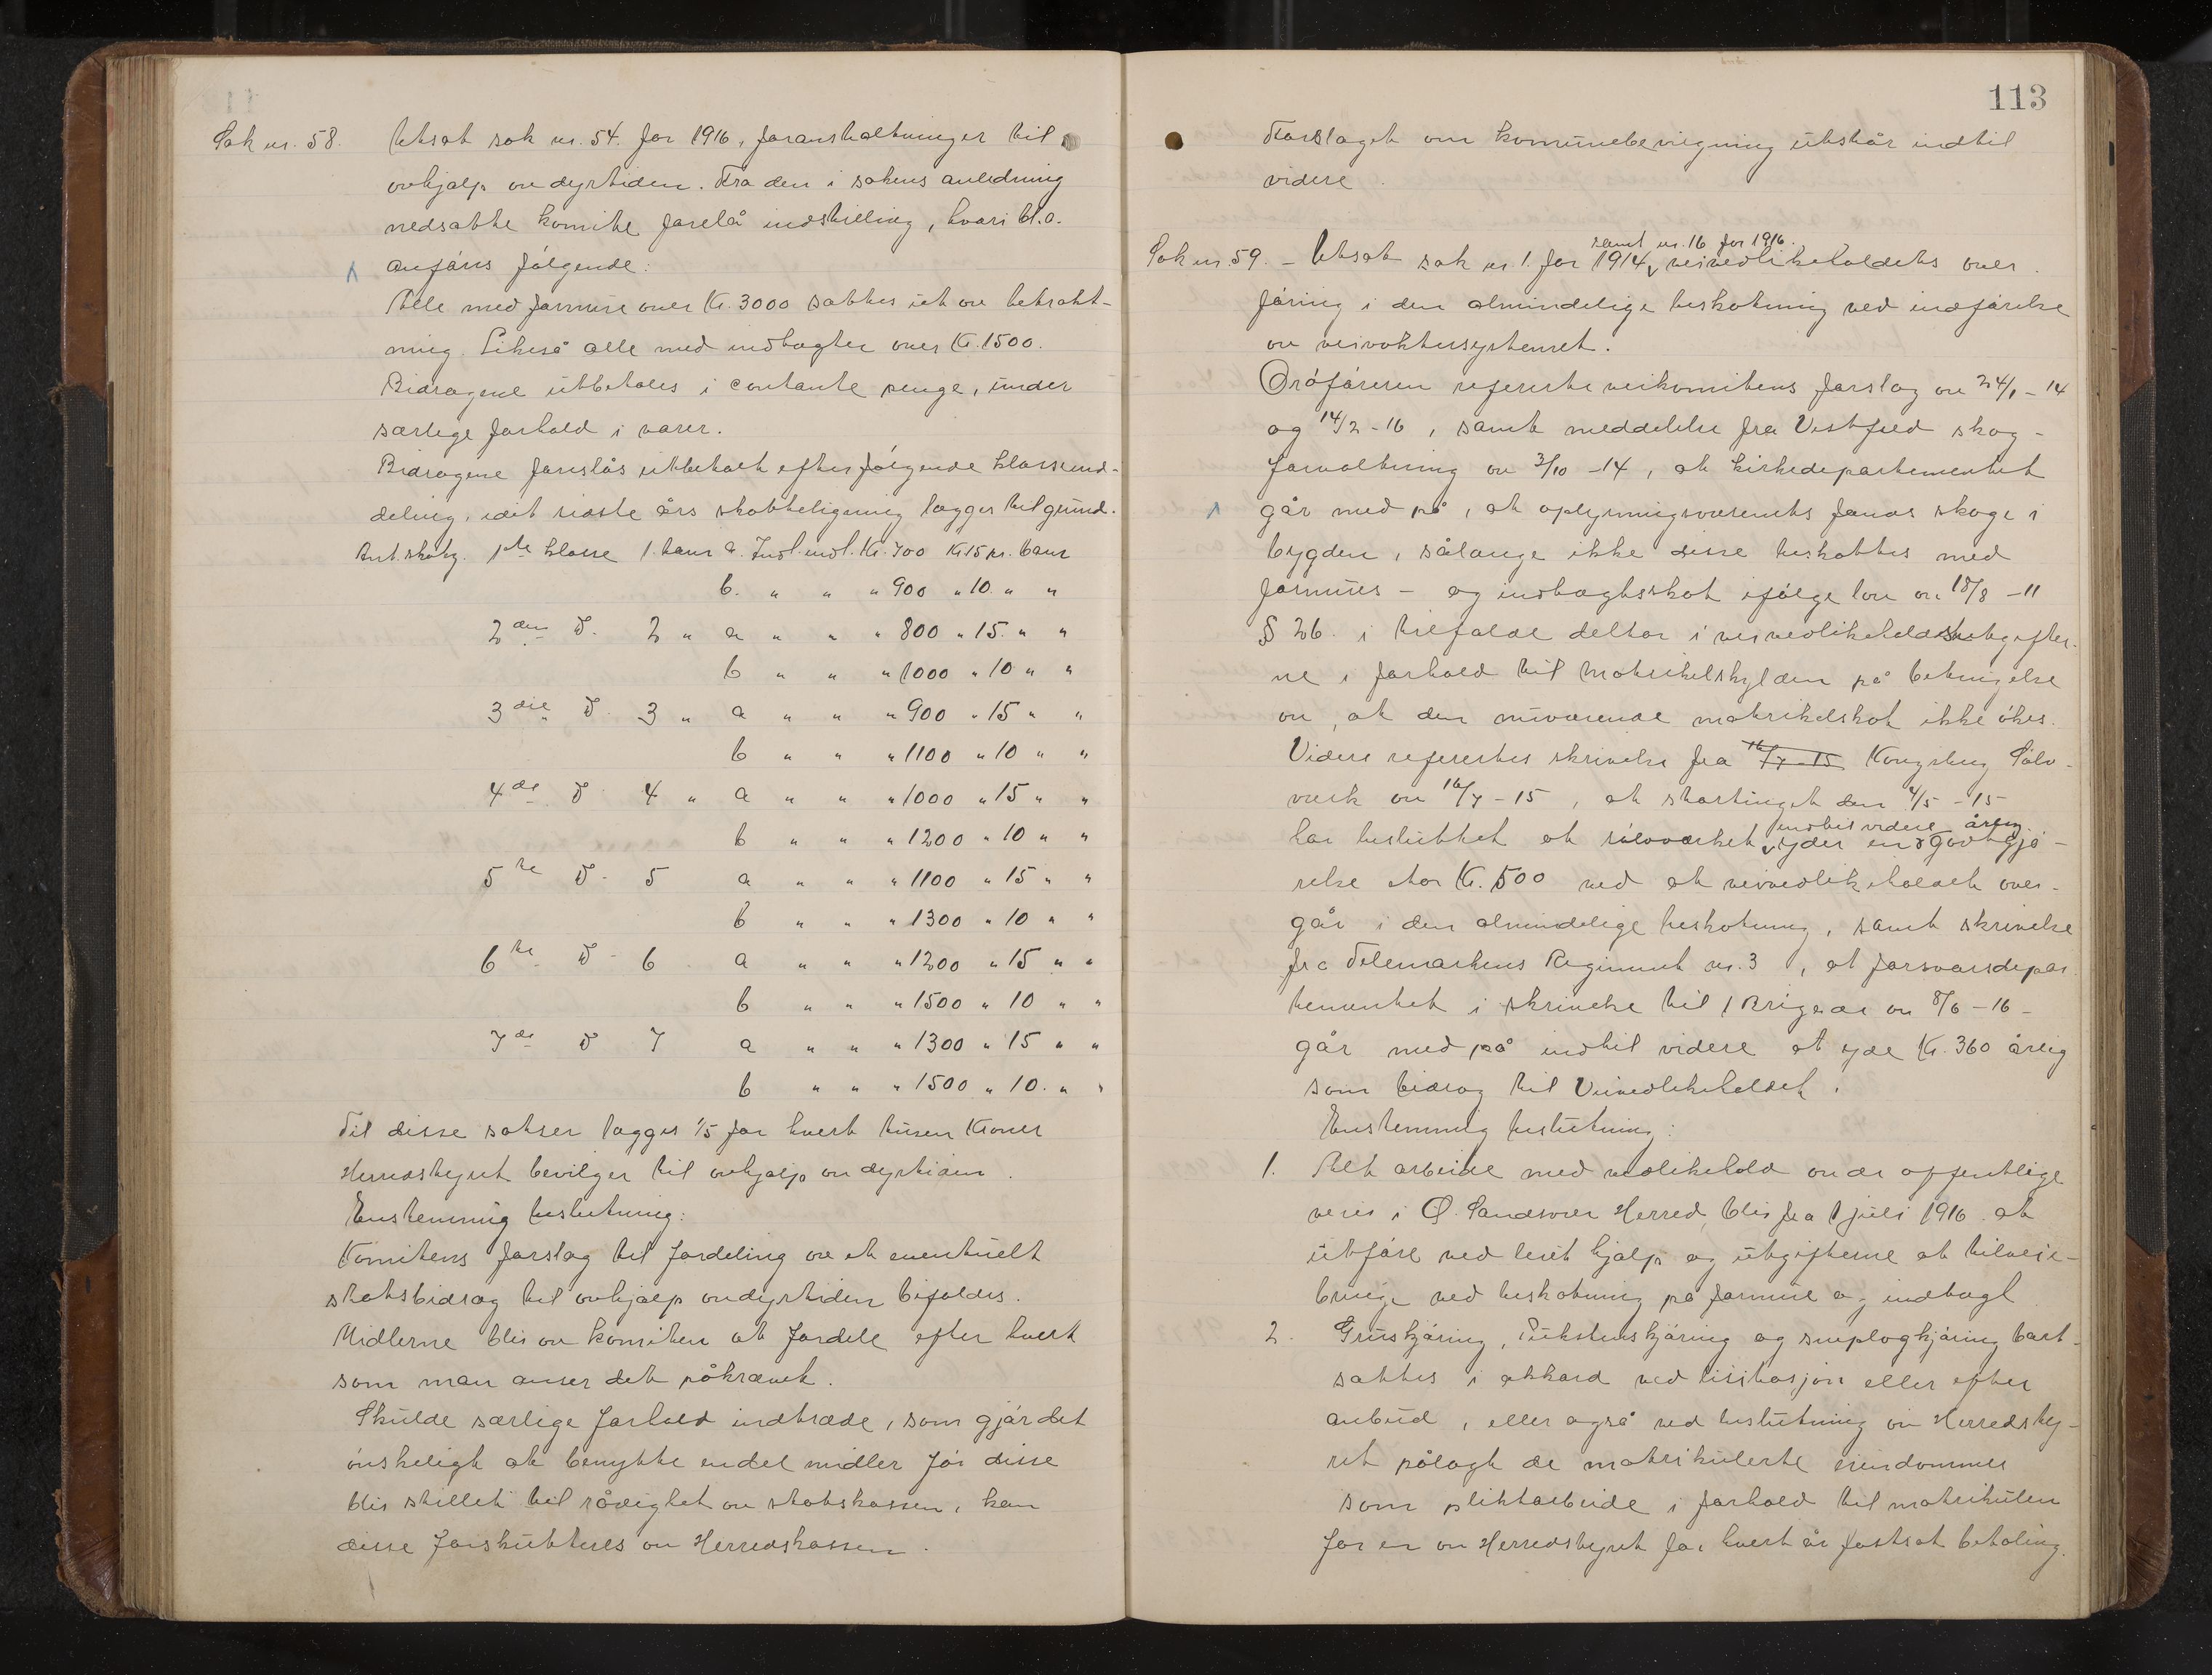 Sak nr. 58. Utsat sak nr. 54 for 1916, foranstaltninger til
avhjælp av dyrtiden. Fra den i sakens anledning
nedsatte komite forelå indstilling, hvori bl.a.
anføres følgende:
Alle med formue over Kr. 3000 sættes ut av betrakt-
ning. Likeså alle med indtægter over Kr. 1500.
Bidragene utbetales i contante penge, under
særlige forhold i varer.
Bidragene foreslås utbetalt efter følgende klasseind-
deling, idet siste års skatteligning lægges til grund.
Ant. skatg. 1ste klasse 1 barn a. Indt. indl. Kr. 700 Kr 15 pr. barn
b. " " " 900 " 10. " "
2den D. 2 " a " " " 800 " 15. " "
b " " " 1000 " 10 " "
3die D. 3 " a " " " 900 " 15 " "
b " " " 1100 " 10 " "
4de D 4 " a " " " 1000 " 15 " "
b " " " 1200 " 10 " "
5te D. 5 a " " " 1100 " 15 " "
b " " " 1300 " 10 " "
6te D. 6 a " " " 1200 " 15 " "
b " " " 1500 " 10 " "
7de D 7 a " " " 1300 " 15 " "
b " " " 1500 " 10. " "
Til disse satser lægges 1/5 for hvert tusen Kroner
Herredstyret bevilger til avhjælp av dyrtiden.
Enstemmig beslutning:
Komiteens forslag til fordeling av et eventuelt
statsbidrag til avhjælp av dyrtiden bifaldes.
Midlerne blir av komiteen at fordele efter hvert
som man anser det påkrævet.
Skulde særlige forhold indtræde, som gjør det
ønskeligt at benytte endel midler før disse
blir stillet til rådighet av statskassen, kan
disse forskutteres av Herredskassen.
113
Forslaget om kommunebevigning utstår indtil
videre.
samt nr. 16 for 1916.
Sak nr. 59. - Utsat sak nr 1. for 1914, veivedlikeholdets over-
føring i den almindelige beskatning ved indførelse
av veivoktersystemet.
Ordføreren refererte veikomiteens forslag av 24/1 - 14
og 14/2 - 16, samt meddelelse fra Vestfjeld skog-
forvaltning av 3/10 - 14, at kirkedepartementet
går med på, at oplysningsvæsenets fonds skoge i
bygden, sålænge ikke disse beskattes med
formues - og indtægtsskat ifølge lov av 18/8 - 11
§ 26. i tilfælde deltar i veivedlikeholdsutgifter-
ne i forhold til matrikelskylden på betingelse
av, at den nuværende matrikelskat ikke økes.
Videre refererte skrivelse fra 16/7 - 15 Kongsberg Sølv-
værk av 16/7 - 15, at stortinget den 4/5 - 15
indtil videre årlig
har besluttet at sølvværket yder en godtgjø-
relse stor Kr. 500 ved at veivedlikeholdet over-
går i den almindelige beskatning, samt skrivelse
fra Telemarkens Regiment nr. 3, at forsvarsdepar-
tementet i skrivelse til 1 Brigade av 8/6 - 16 -
går med på indtil videre at yde Kr. 360 årlig
som bidrag til Veivedlikeholdet.
Enstemmig beslutning:
1. Alt arbeide med vedlikehold av de offentlige
veier i Ø. Sandsvær Herred, blir fra 1 juli 1916 at
utføre ved leiet hjælp og utgifterne at tilveie-
bringe ved beskatning på formue og indtægt.
2. Gruskjøring, Pukstenskjøring og sneplogkjøring bort-
sættes i akkord ved lisitasjon eller efter
anbud, eller også ved beslutning av Herredsty-
ret pålagt de matrikulerte eiendommer
som pliktarbeide i forhold til matrikulen
for en av Herredstyret for hvert år fastsat betaling.